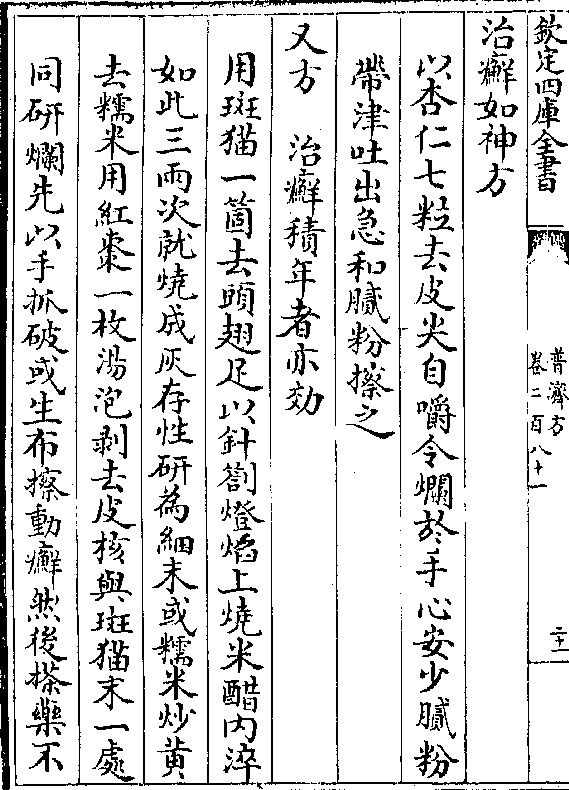 欽定四庫全書
普濟方
卷二百八十一
二十二
治癬如神方
以杏仁七粒去皮尖自嚼令爛於手心安少膩粉
帶津吐出急和膩粉擦之
又方　治癬積年者亦効
用斑猫一箇去頭翅足以針劄燈焰上燒米醋内淬
如此三兩次就燒成灰存性研為細末或糯米炒黄
去糯米用紅棗一枚湯泡剥去皮核與斑猫末一處
同研爛先以手抓破或生布擦動癬然後搽藥不